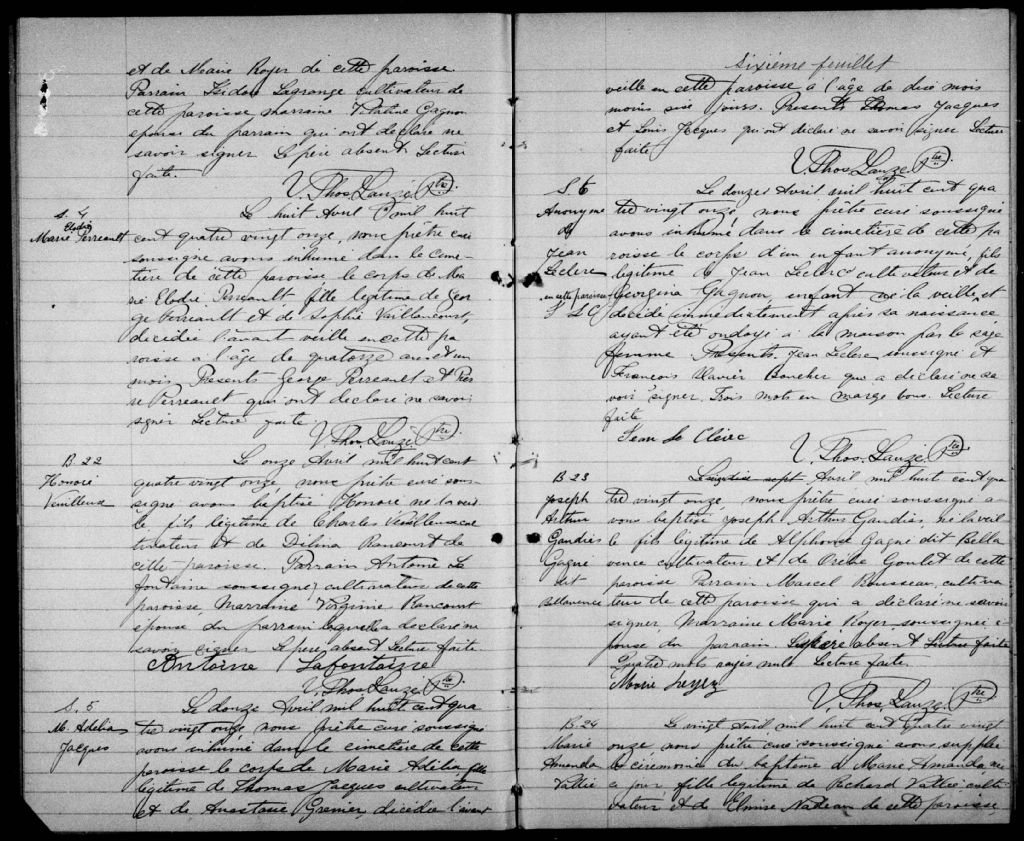 et de Marie Royer de cette paroisse
Parrain Isidore Lagrange cultivateur de
cette paroisse marraine Vitaline Gagnon
epouse du parrain qui ont déclaré ne
savoir signer Le père absent. Lecture
faite.
V. Thos. Lauzé Ptre.
S. 4
Marie Elodie Perreault
Le huit Avril mil huit
cent quatre vingt onze, nous prêtre curé
soussigné avons inhumé dans le cime-
tière de cette paroisse le corps de Ma
rie Elodie Perreault, fille légitime de Geor
ge Perreault et de Sophie Vaillancourt,
décédée l'avant veille en cette pa
roisse à l'âge de quatorze ans et un
mois Présents George Perreault et Pier
re Perreault qui ont déclaré ne savoir
signer Lecture faite
V. Thos. Lauzé Ptre.
B. 22
Honoré
Veuilleux
Le onze Avril mil huit cent
quatre vingt onze nous prêtre curé sous
signé avons baptisé Honoré né la veil
le fils légitime de Charles Veilleux cul
tivateur et de Délina Rancourt de
cette paroisse. Parrain Antoine La
fontaine soussigné, cultivateur de cette
paroisse, Marraine Virginie Rancourt
épouse du parrain laquelle a déclaré ne
savoir signer Le père absent Lecture faite
Antoine Lafontaine
V. Thos. Lauzé Ptre.
S. 5
M. Adélia
Jacques
Le douze Avril mil huit cent qua
tre vingt onze, nous prêtre curé soussigné
avons inhumé dans le cimetière de cette
paroisse le corps de Marie Adélia fille
légitime de Thomas Jacques cultivateur
et de Anastasie Grenier, décédée l'avant
Sixième feuillet
veille en cette paroisse à l'âge de dix mois
moins six jours. Présents Thomas Jacques
et Louis Jacques qui ont déclaré ne savoir signer Lecture
faite
V. Thos. Lauzé Ptre.
S. 6
Anonyme
de
Jean
Leclerc
en cette paroisse
J LC
Le douze Avril mil huit cent qua
tre vingt onze, nous prêtre curé soussigné
avons inhumé dans le cimetière de cette pa
roisse le corps d'un enfant anonyme, fils
légitime de Jean Leclerc cultivateur et de
Georgina Gagnon, enfant né la veille, et
décédé immédiatement après sa naissance
ayant été ondoyé à la maison par la sage
femme Présents Jean Leclerc soussigné et
François Xavier Boucher qui a déclaré ne sa
voir signer. Trois mots en marge bons. Lecture
faite
Jean Le Clerc
V. Thos. Lauzé Ptre
B 23
Joseph
Arthur
Gaudias
Gagné
dit
Bellavence
Le dix sept Avril mil huit cent qua
tre vingt onze, nous prêtre curé soussigné a-
vons baptisé Joseph Arthur Gaudias, né la veil
le fils légitime de Alphonse Gagné dit Bella
vence cultivateur et de Orélie Goulet de cette
paroisse Parrain Marcel Rousseau, cultiva
teur de cette paroisse qui a déclaré ne savoir
signer Marraine Marie Royer soussignée é-
pouse du parrain. Le père absent Lecture faite
Quatre mots rayés nuls Lecture faite.
Marie
V. Thos. Lauzé Ptre
B. 24
Marie
Amanda
Vallée
Le vingt Avril mil huit cent quatre vingt
onze, nous prêtre curé soussigné avons suppléé
les cérémonies du baptême à Marie Amanda, née
ce jour fille légitime de Richard Vallée, culti
vateur et de Elmire Nadeau de cette paroisse,